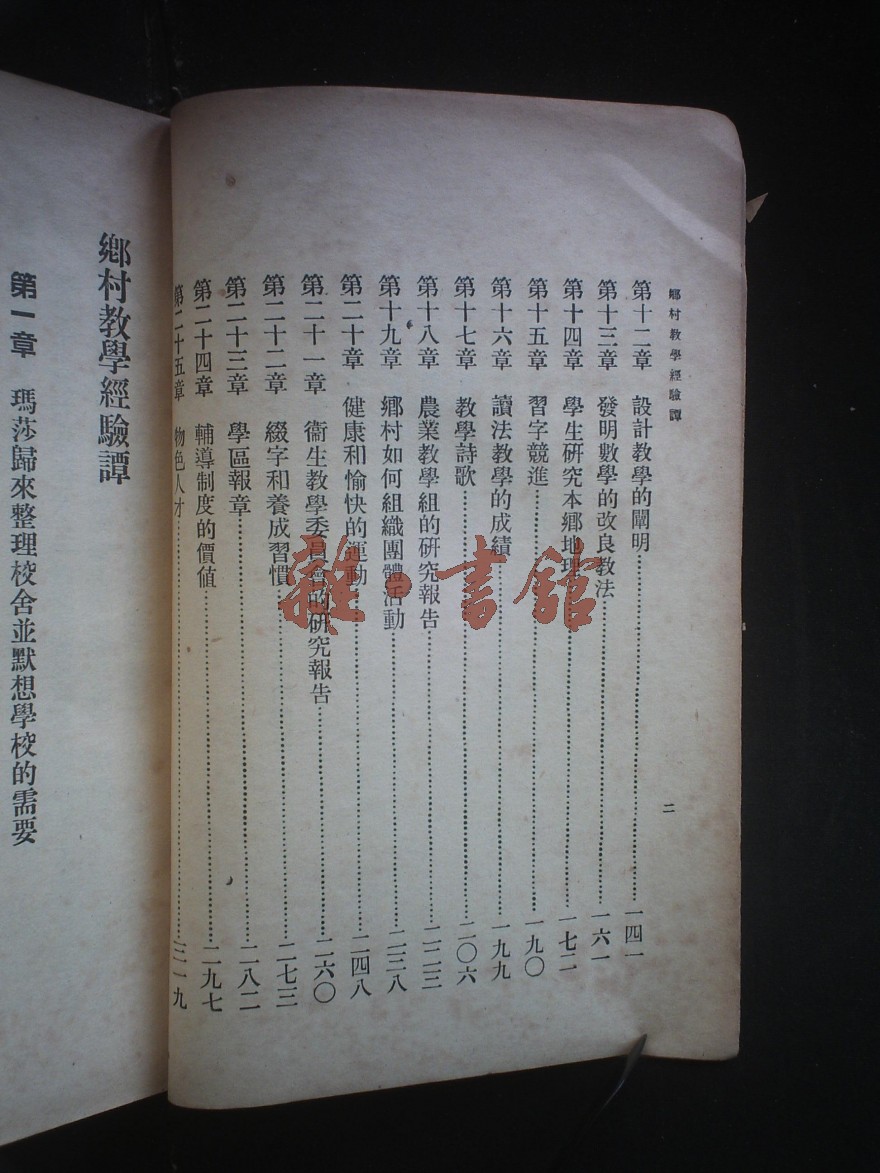 鄉村教學經驗譚
第十二章 設計教學的闡明……一四一
第十三章 發明數學的改良教法……一六一
第十四章 學生研究本鄉地理……一七二
第十五章 習字競進……一九〇
第十六章 讀法教學的成績……一九九
第十七章 教學詩歌……二〇六
第十八章 農業教學組的研究報告……二二三
第十九章 鄉村如何組織團體活動……二三八
第二十章 健康和愉快的運動……二四八
第二十一章 衞生教學委員會的研究報告……二六〇
第二十二章 綴字和養成習慣……二七三
第二十三章 學區報章……二八二
第二十四章 輔導制度的價值……二九七
第二十五章 物色人才……三一九
二
鄉村教學經驗譚
第一章 瑪莎歸來整理校舍並默想學校的需要
雜·書館